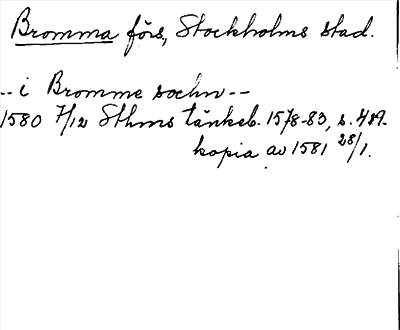 Bromma förs, Stockholms stad.
-- i Bromme sochn --
1580 7/12 Sthms tänkeb. 1578-83, s. 489.
kopia av 1581 28/1.